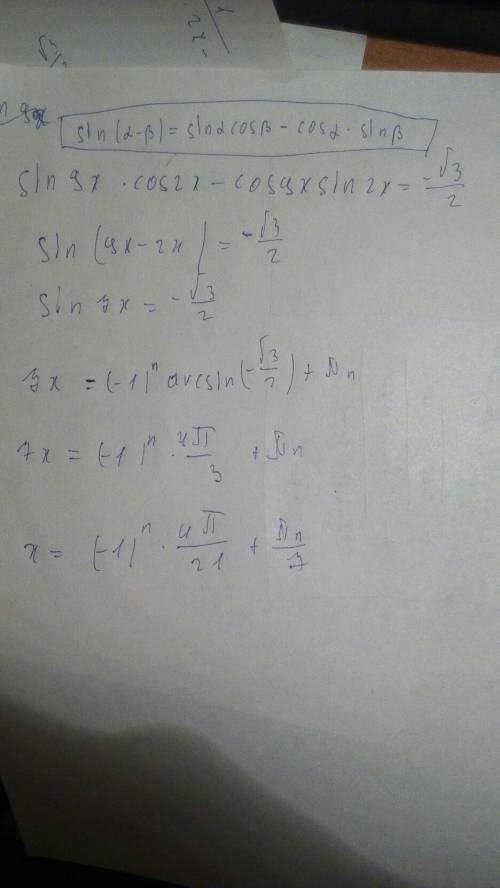 sin(α-β)=sinαcosβ-cosα·sinβ
sin 9x · cos2x - cos9x sin 2x = -√3/2
sin (9x-2x) = -√3/2
sin 7x = -√3/2
7x = (-1)^n arcsin(-√3/2) + πn
7x = (-1)^n · 4π/3 + πn
x = (-1)^n · 4π/21 + πn/7